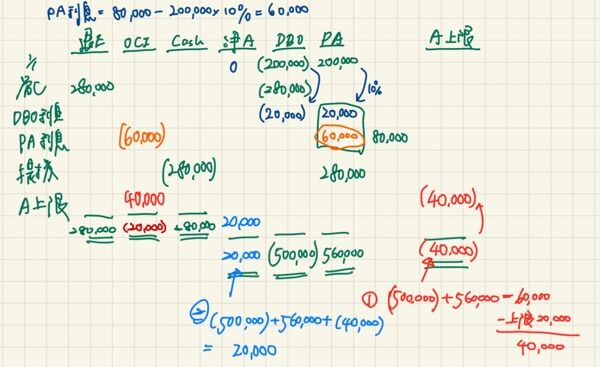 PA利息 = 80,000 - 200,000 × 10% = 60,000
退E OCI Cash 淨A DBO PA A上限
1/1 0 (200,000) 200,000
當C 280,000 (280,000) 10%
DBO利息 (20,000) 20,000
PA利息 (60,000) 60,000 80,000
提撥 (280,000) 280,000
A上限 40,000 (40,000)
280,000 (20,000) 280,000 20,000
20,000 (500,000) 560,000 (40,000)
① (500,000) + 560,000 = 60,000
- 上限 20,000
40,000
② (500,000) + 560,000 + (40,000)
= 20,000